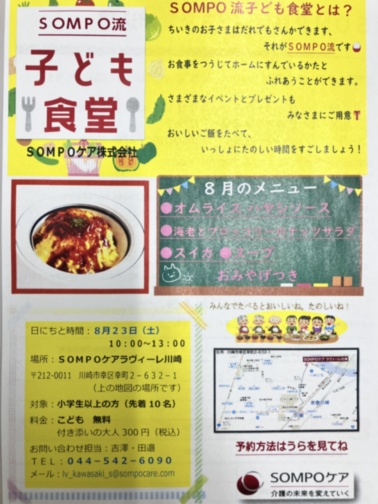 SOMPO流
子ども
食堂
SOMPOケア株式会社
SOMPO流子ども食堂とは？
ちいきのお子さまはだれでもさんかできます、
それがSOMPO流です
お食事をつうじてホームにすんでいるかたと
ふれあうことができます。
さまざまなイベントとプレゼントも
みなさまにご用意
おいしいご飯をたべて、
いっしょにたのしい時間をすごしましょう！
8月のメニュー
●オムライス ハヤシソース
●海老とブロッコリーの
サラダ
●スイカ ●スープ
おみやげつき
みんなでたべるとおいしいね。たのしいね！
日にちと時間：8月23日（土）
10:00～13:00
場所：SOMPOケアラヴィーレ川崎
〒212-0011 川崎市幸区幸町2－632－1
（上の地図の場所です）
対象：小学生以上の方（先着10名）
料金：こども 無料
付き添いの大人300円（税込）
お問い合わせ担当：吉澤・田邉
TEL：044－542－6090
メール：lv_kawasaki_s@sompocare.com
予約方法はうらを見てね
SOMPOケア
介護の未来を変えていく